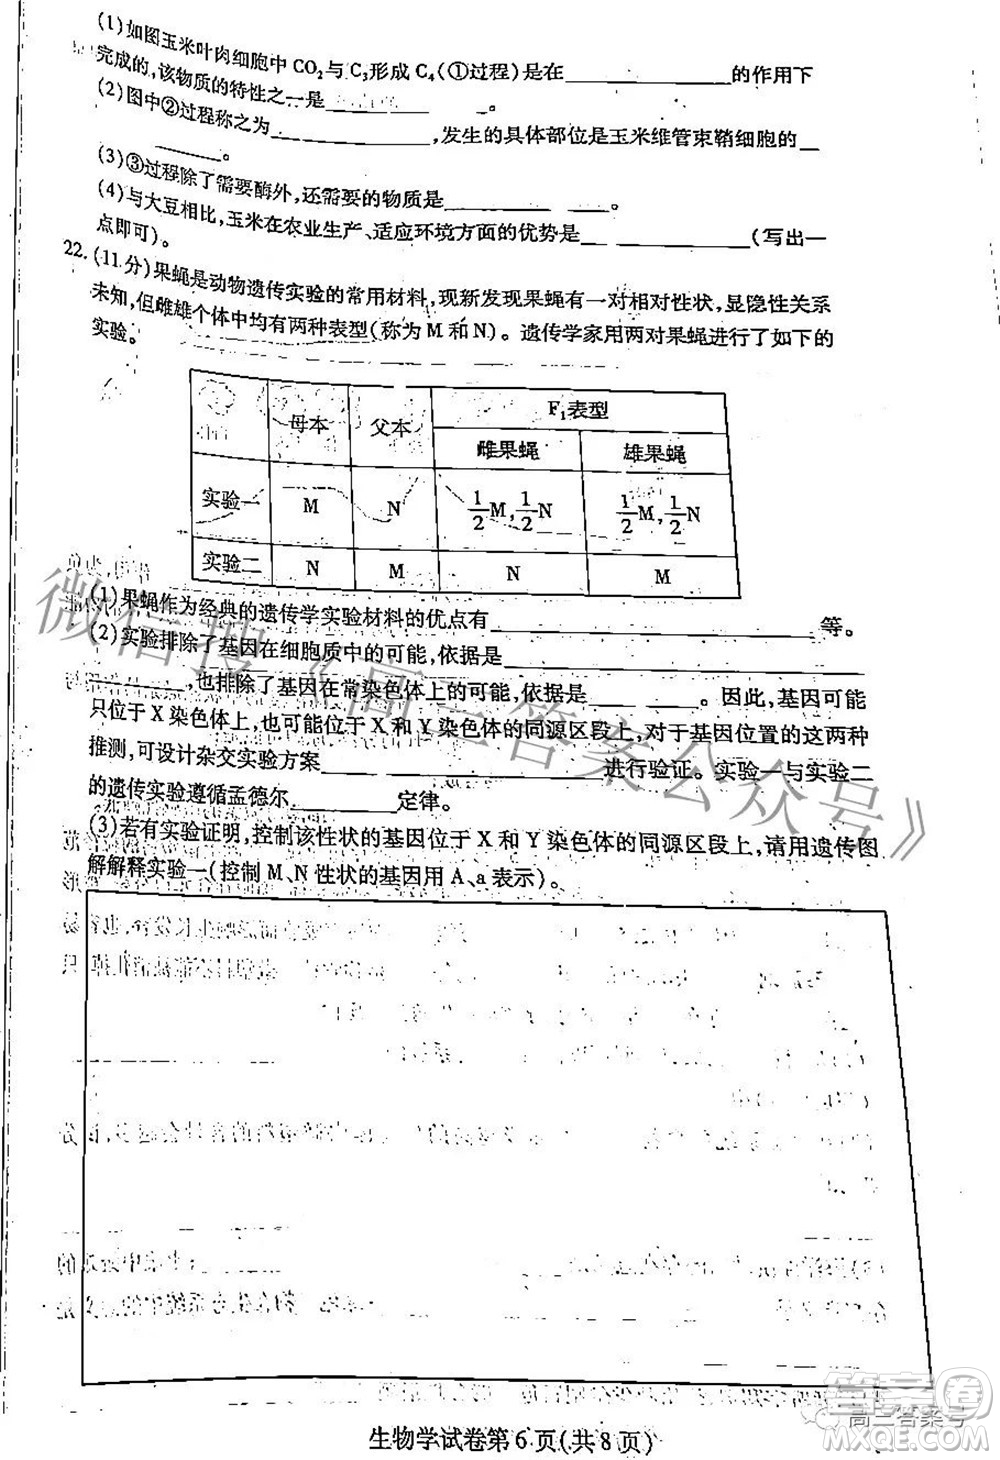 (1)如图玉米叶肉细胞中 CO₂与C₃形成 C₄(①过程)是在____的作用下
完成的,该物质的特性之一是____。
(2)图中②过程称之为____,发生的具体部位是玉米维管束鞘细胞的__
____。
(3)③过程除了需要酶外,还需要的物质是____。
(4)与大豆相比,玉米在农业生产、适应环境方面的优势是____(写出一
点即可)。
22.(11分)果蝇是动物遗传实验的常用材料,现新发现果蝇有一对相对性状,显隐性关系
未知,但雌雄个体中均有两种表型(称为 M 和 N)。遗传学家用两对果蝇进行了如下的
实验。
母本 父本 F₁表型
雌果蝇 雄果蝇
实验一 M N 1/2M,1/2N 1/2M,1/2N
实验二 N M N M
(1)果蝇作为经典的遗传学实验材料的优点有____等。
(2)实验排除了基因在细胞质中的可能,依据是____
____,也排除了基因在常染色体上的可能,依据是____。因此,基因可能
只位于 X 染色体上,也可能位于 X 和 Y 染色体的同源区段上,对于基因位置的这两种
推测,可设计杂交实验方案____进行验证。实验一与实验二
的遗传实验遵循孟德尔____定律。
(3)若有实验证明,控制该性状的基因位于 X 和 Y 染色体的同源区段上,请用遗传图
解解释实验一(控制 M、N 性状的基因用 A、a 表示)。
生物学试卷第 6 页(共 8 页)
微信搜《高三答案公众号》
高三答案号
答案圈
MXQE.COM